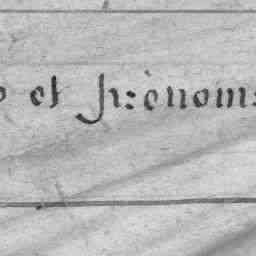 et Prènoms